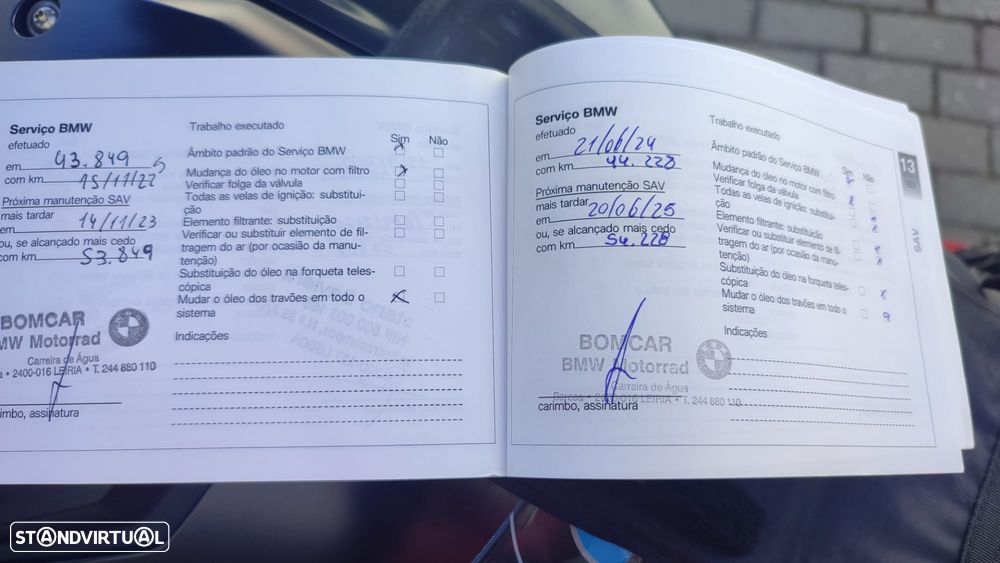 Serviço BMW
efetuado
em 43.849
com km 15/11/22
Próxima manutenção SAV
mais tardar
em 14/11/23
ou, se alcançado mais cedo
com km 53.849
BOMCAR
MW Motorrad
Carreira de Água
2400-016 LEIRIA • T. 244 880 110
carimbo, assinatura
Trabalho executado
Sim Não
Âmbito padrão do Serviço BMW
Mudança do óleo no motor com filtro
Verificar folga da válvula
Todas as velas de ignição: substitui-
ção
Elemento filtrante: substituição
Verificar ou substituir elemento de fil-
tragem do ar (por ocasião da manu-
tenção)
Substituição do óleo na forqueta teles-
cópica
Mudar o óleo dos travões em todo o
sistema
Indicações
Serviço BMW
efetuado
em 21/06/24
com km 44.228
Próxima manutenção SAV
mais tardar
em 20/06/25
ou, se alcançado mais cedo
com km 54.228
BOMCAR
BMW Motorrad
Carreira de Água
2400-016 LEIRIA • T. 244 880 110
carimbo, assinatura
Trabalho executado
Sim Não
Âmbito padrão do Serviço BMW
Mudança do óleo no motor com filtro
Verificar folga da válvula
Todas as velas de ignição: substitui-
ção
Elemento filtrante: substituição
Verificar ou substituir elemento de fil-
tragem do ar (por ocasião da manu-
tenção)
Substituição do óleo na forqueta teles-
cópica
Mudar o óleo dos travões em todo o
sistema
Indicações
13
SAV
STANDVIRTUAL